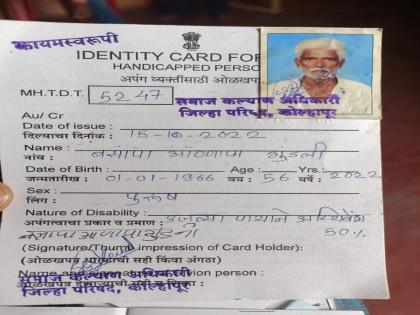 कायमस्वरूपी
IDENTITY CARD FOR
HANDICAPPED PERSO
अपंग व्यक्तींसाठी ओळखप
MH.T.D.T. 5247
समाज कल्याण अधिकारी
जिल्हा परिषद, कोल्हापूर
Au/ Cr
Date of issue :
दिल्याचा दिनांक : 15-10-2022
Name :
नांव :
Date of Birth : Age : Yrs.:
जन्मतारीख : 01-01-1966 वय : 56 वर्षे : 2022
Sex :
लिंग : पुरुष
Nature of Disability :
अपंगत्वाचा प्रकार व प्रमाण : उजव्या पायाने अस्थिव्यंग
50%
(Signature/Thumb impression of Card Holder):
(ओळखपत्र धारकाची सही किंवा अंगठा)
Name and person :
समाज कल्याण अधिकारी
जिल्हा परिषद, कोल्हापूर